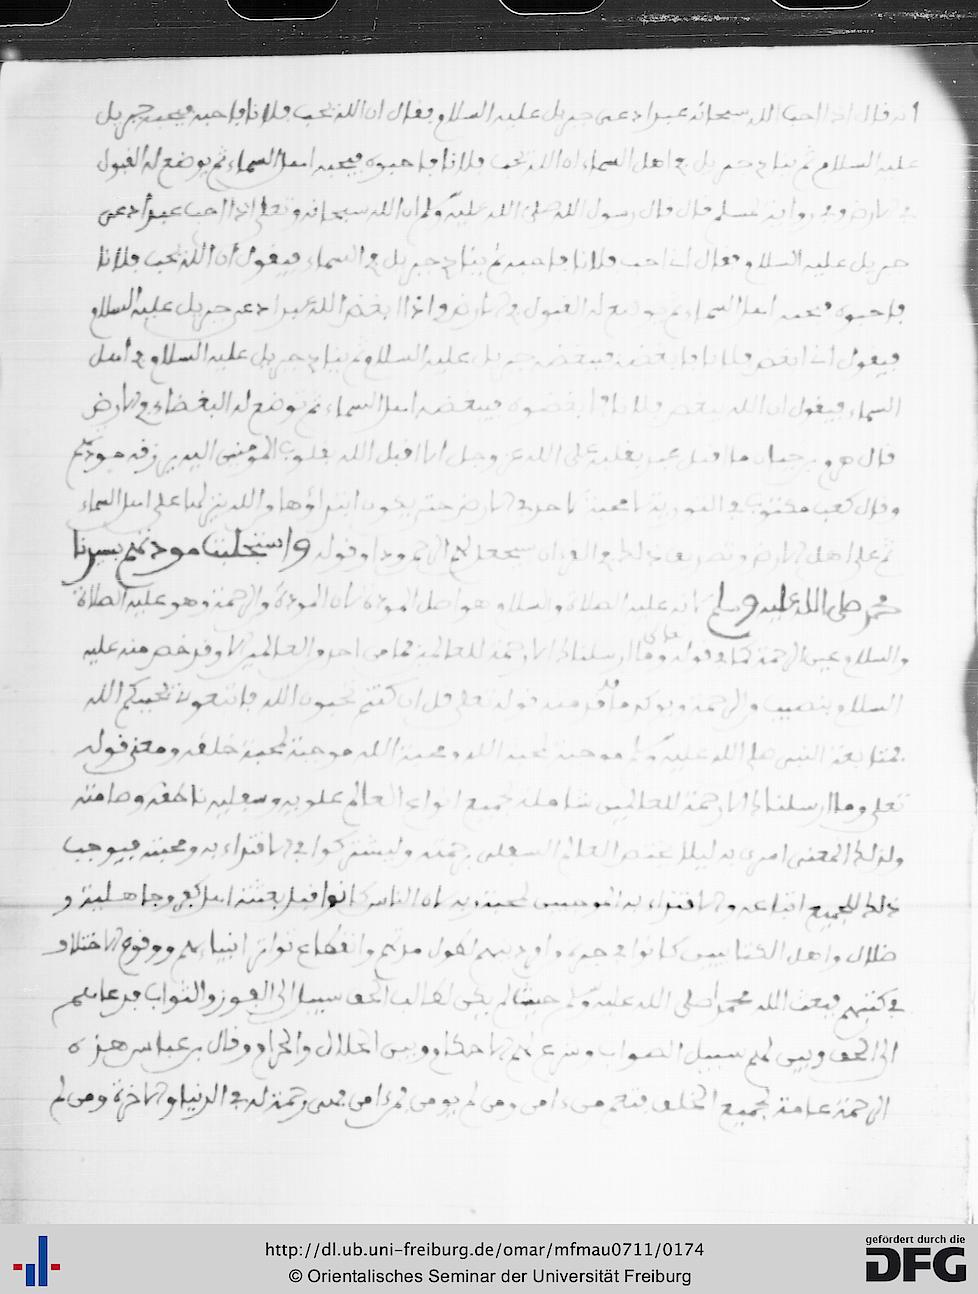 انه قال اذا احب الله سبحانه عبدا دعى جبريل عليه السلام فقال ان الله يحب فلانا فاحبه فيحبه جبريل
عليه السلام ثم ينادي جبريل في اهل السماء ان الله يحب فلانا فاحبوه فيحبه اهل السماء ثم يوضع له القبول
في الارض وفي رواية لمسلم قال قال رسول الله صلى الله عليه وسلم ان الله سبحانه وتعلى اذا احب عبدا دعى
جبريل عليه السلام فقال احب فلانا فاحبه ثم ينادي جبريل في السماء فيقول ان الله يحب فلانا
فاحبوه فيحبه اهل السماء ثم يوضع له القبول في الارض واذا ابغض الله عبدا دعى جبريل عليه السلام
فيقول ابغض فلانا فابغضه فيبغضه جبريل عليه السلام ثم ينادي جبريل عليه السلام في اهل
السماء فيقول ان الله يبغض فلانا فابغضوه فيبغضه اهل السماء ثم توضع له البغضاء في الارض
قال هرم بن حيان ما اقبل عبد بقلبه على الله عز وجل الا اقبل الله بقلوب المؤمنين اليه يرزقه مودتهم
وقال كعب مكتوب في التورية لا محبة لاحد في الارض حتى يكون ابتداؤها من الله ينزلها على اهل السماء
ثم على اهل الارض وتصديق ذلك في القرءان سيجعل لهم الرحمن ودا وقوله واستجلبنا مودتهم بسيدنا
محمد صلى الله عليه وسلم لانه عليه الصلاة والسلام هو اصل المودة لان المودة والرحمة وهو عليه الصلاة
والسلام عين الرحمة كما في قوله تعلى وما ارسلناك الا رحمة للعالمين فما من احد من العالمين الا وقد خص منه عليه
السلام بنصيب من الرحمة ويؤكد ما قدمنه قوله تعلى قل ان كنتم تحبون الله فاتبعوني يحببكم الله
فمتابعة النبي صلى الله عليه وسلم موجبة لمحبة الله ومحبة الله موجبة لمحبة خلقه ومعنى قوله
تعلى وما ارسلناك الا رحمة للعالمين شاملة لجميع انواع العالم علويه وسفليه ناطقه وصامته
ولذلك المعنى اسري به ليلا ليختص العالم السفلي برحمته وليشتركوا في الاقتداء به ومحبته فيوجب
ذلك للجميع اتباعه والاقتداء به لان الناس كانوا قبل بعثته اهل كفر وجاهلية و
ضلال واهل الكتابين كانوا في حيرة من امر دينهم لطول مدتهم وانقطاع تواتر انبيائهم ووقوع الاختلاف
في كتبهم فبعث الله محمدا صلى الله عليه وسلم حيث لم يكن لطالب الحق سبيلا الى الفوز والثواب فدعاهم
الى الحق وبين لهم سبيل الصواب وشرع لهم الاحكام وبين الحلال والحرام وقال بن عباس هذه
الرحمة عامة لجميع الخلق فتعم من ءامن ومن لم يومن فمن ءامن فهي رحمة له في الدنيا والاخرة ومن لم
http://dl.ub.uni-freiburg.de/omar/mfmau0711/0174
© Orientalisches Seminar der Universität Freiburg
gefördert durch die
DFG